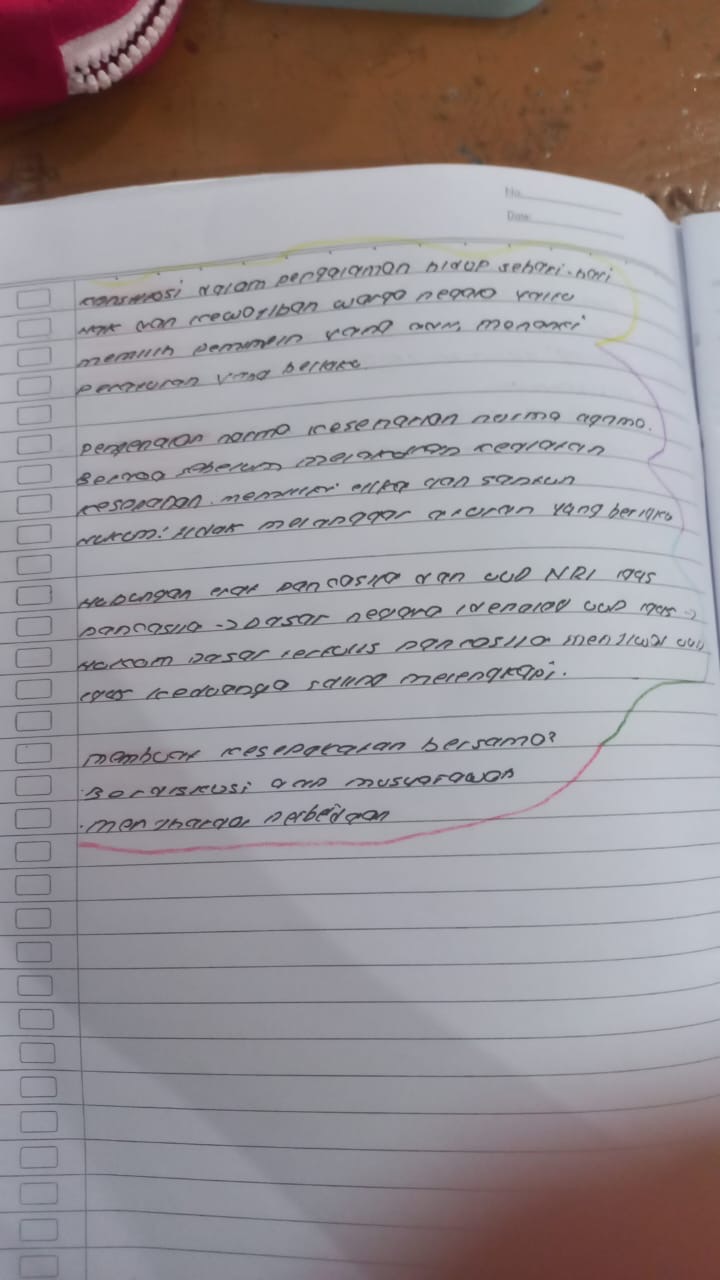 No.
Date:
konstitusi dalam pengalaman hidup sehari-hari
hak dan kewajiban warga negara yaitu
memilih pemimpin yang menaati
peraturan yang berlaku
norma kesenarian norma agama.
Berdoa sebelum melakukan kegiatan
kesopanan. etika dan santun
hukum: tidak melanggar aturan yang berlaku
Hubungan erat pancasila dan UUD NRI 1945
pancasila -> Dasar negara UUD 1945 ->
Hukum Dasar tertulis pancasila menjiwai UUD
1945 keduanya saling melengkapi.
membuat kesepakatan bersama?
. Berdiskusi musyawarah
. menghargai perbedaan